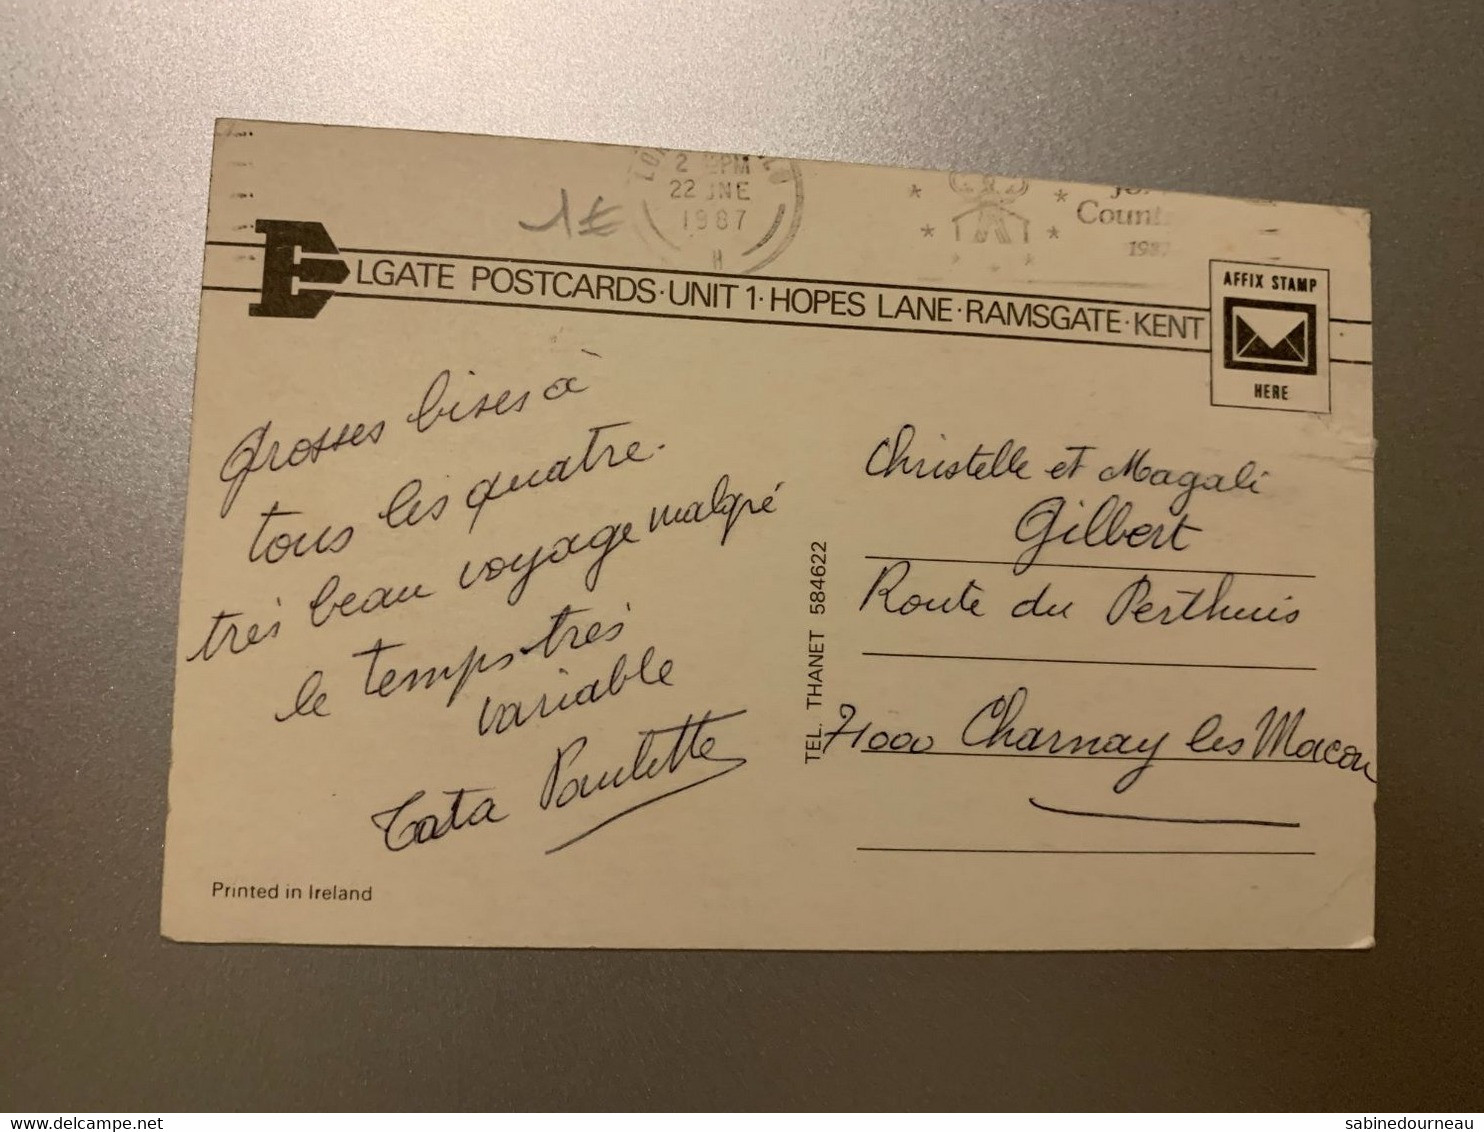 2 PM
22 JNE
1987
H
1€
Count
1987
ELGATE POSTCARDS·UNIT 1·HOPES LANE·RAMSGATE·KENT
AFFIX STAMP
HERE
Grosses bises à
tous les quatre.
très beau voyage malgré
le temps très
variable
Tata Paulette
Printed in Ireland
TEL. THANET 584622
Christelle et Magali
Gilbert
Route du Perthuis
71000 Charnay les Macon
delcampe.net
sabinedourneau